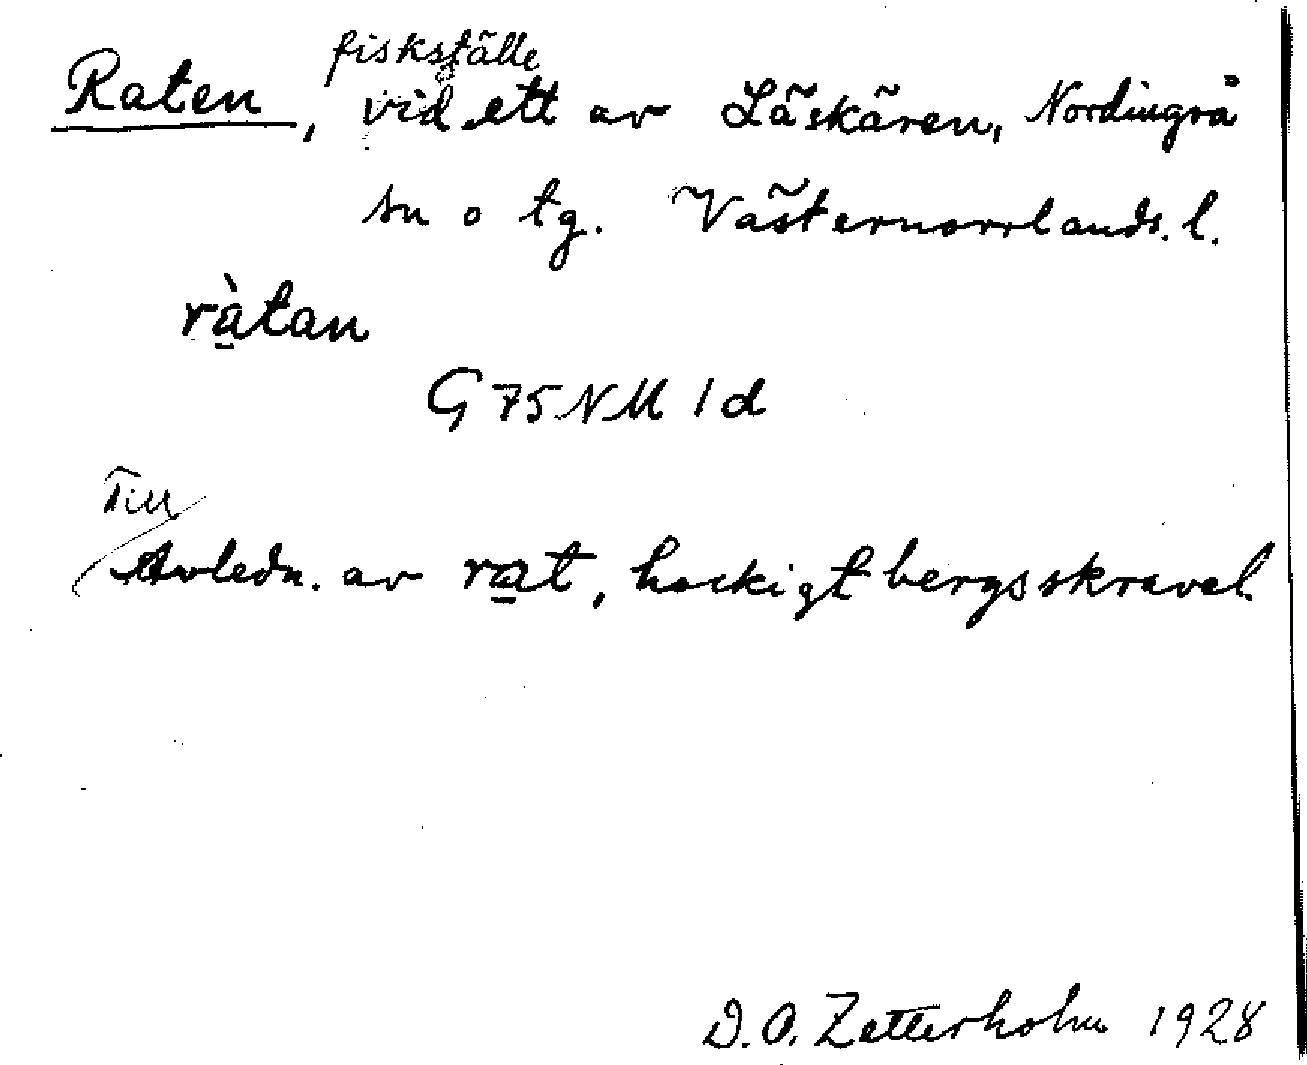 Raten, fiskställe vid ett av Läskären, Nordingrå
sn o tg. Västernorrlands. l.
ràtan
G 75 NM 1d
Till
Avledn. av rat, hackigt bergsskravel.
D. O. Zetterholm 1928